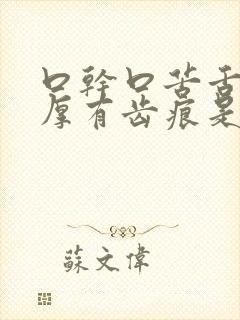 口幹口苦舌
厚有齿痕是
蘇文偉